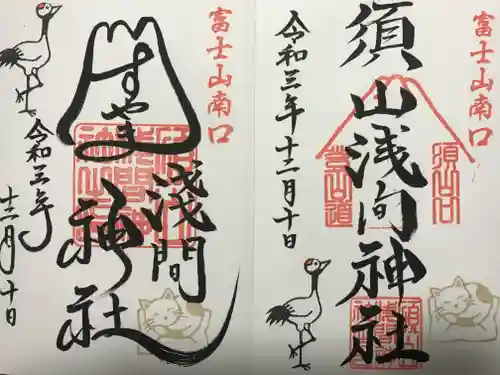 富士山南口
須山浅间神社
須山口
登山道
令和三年十二月十日
富士山南口
すやま
淺間
神社
令和三年
十二月十日